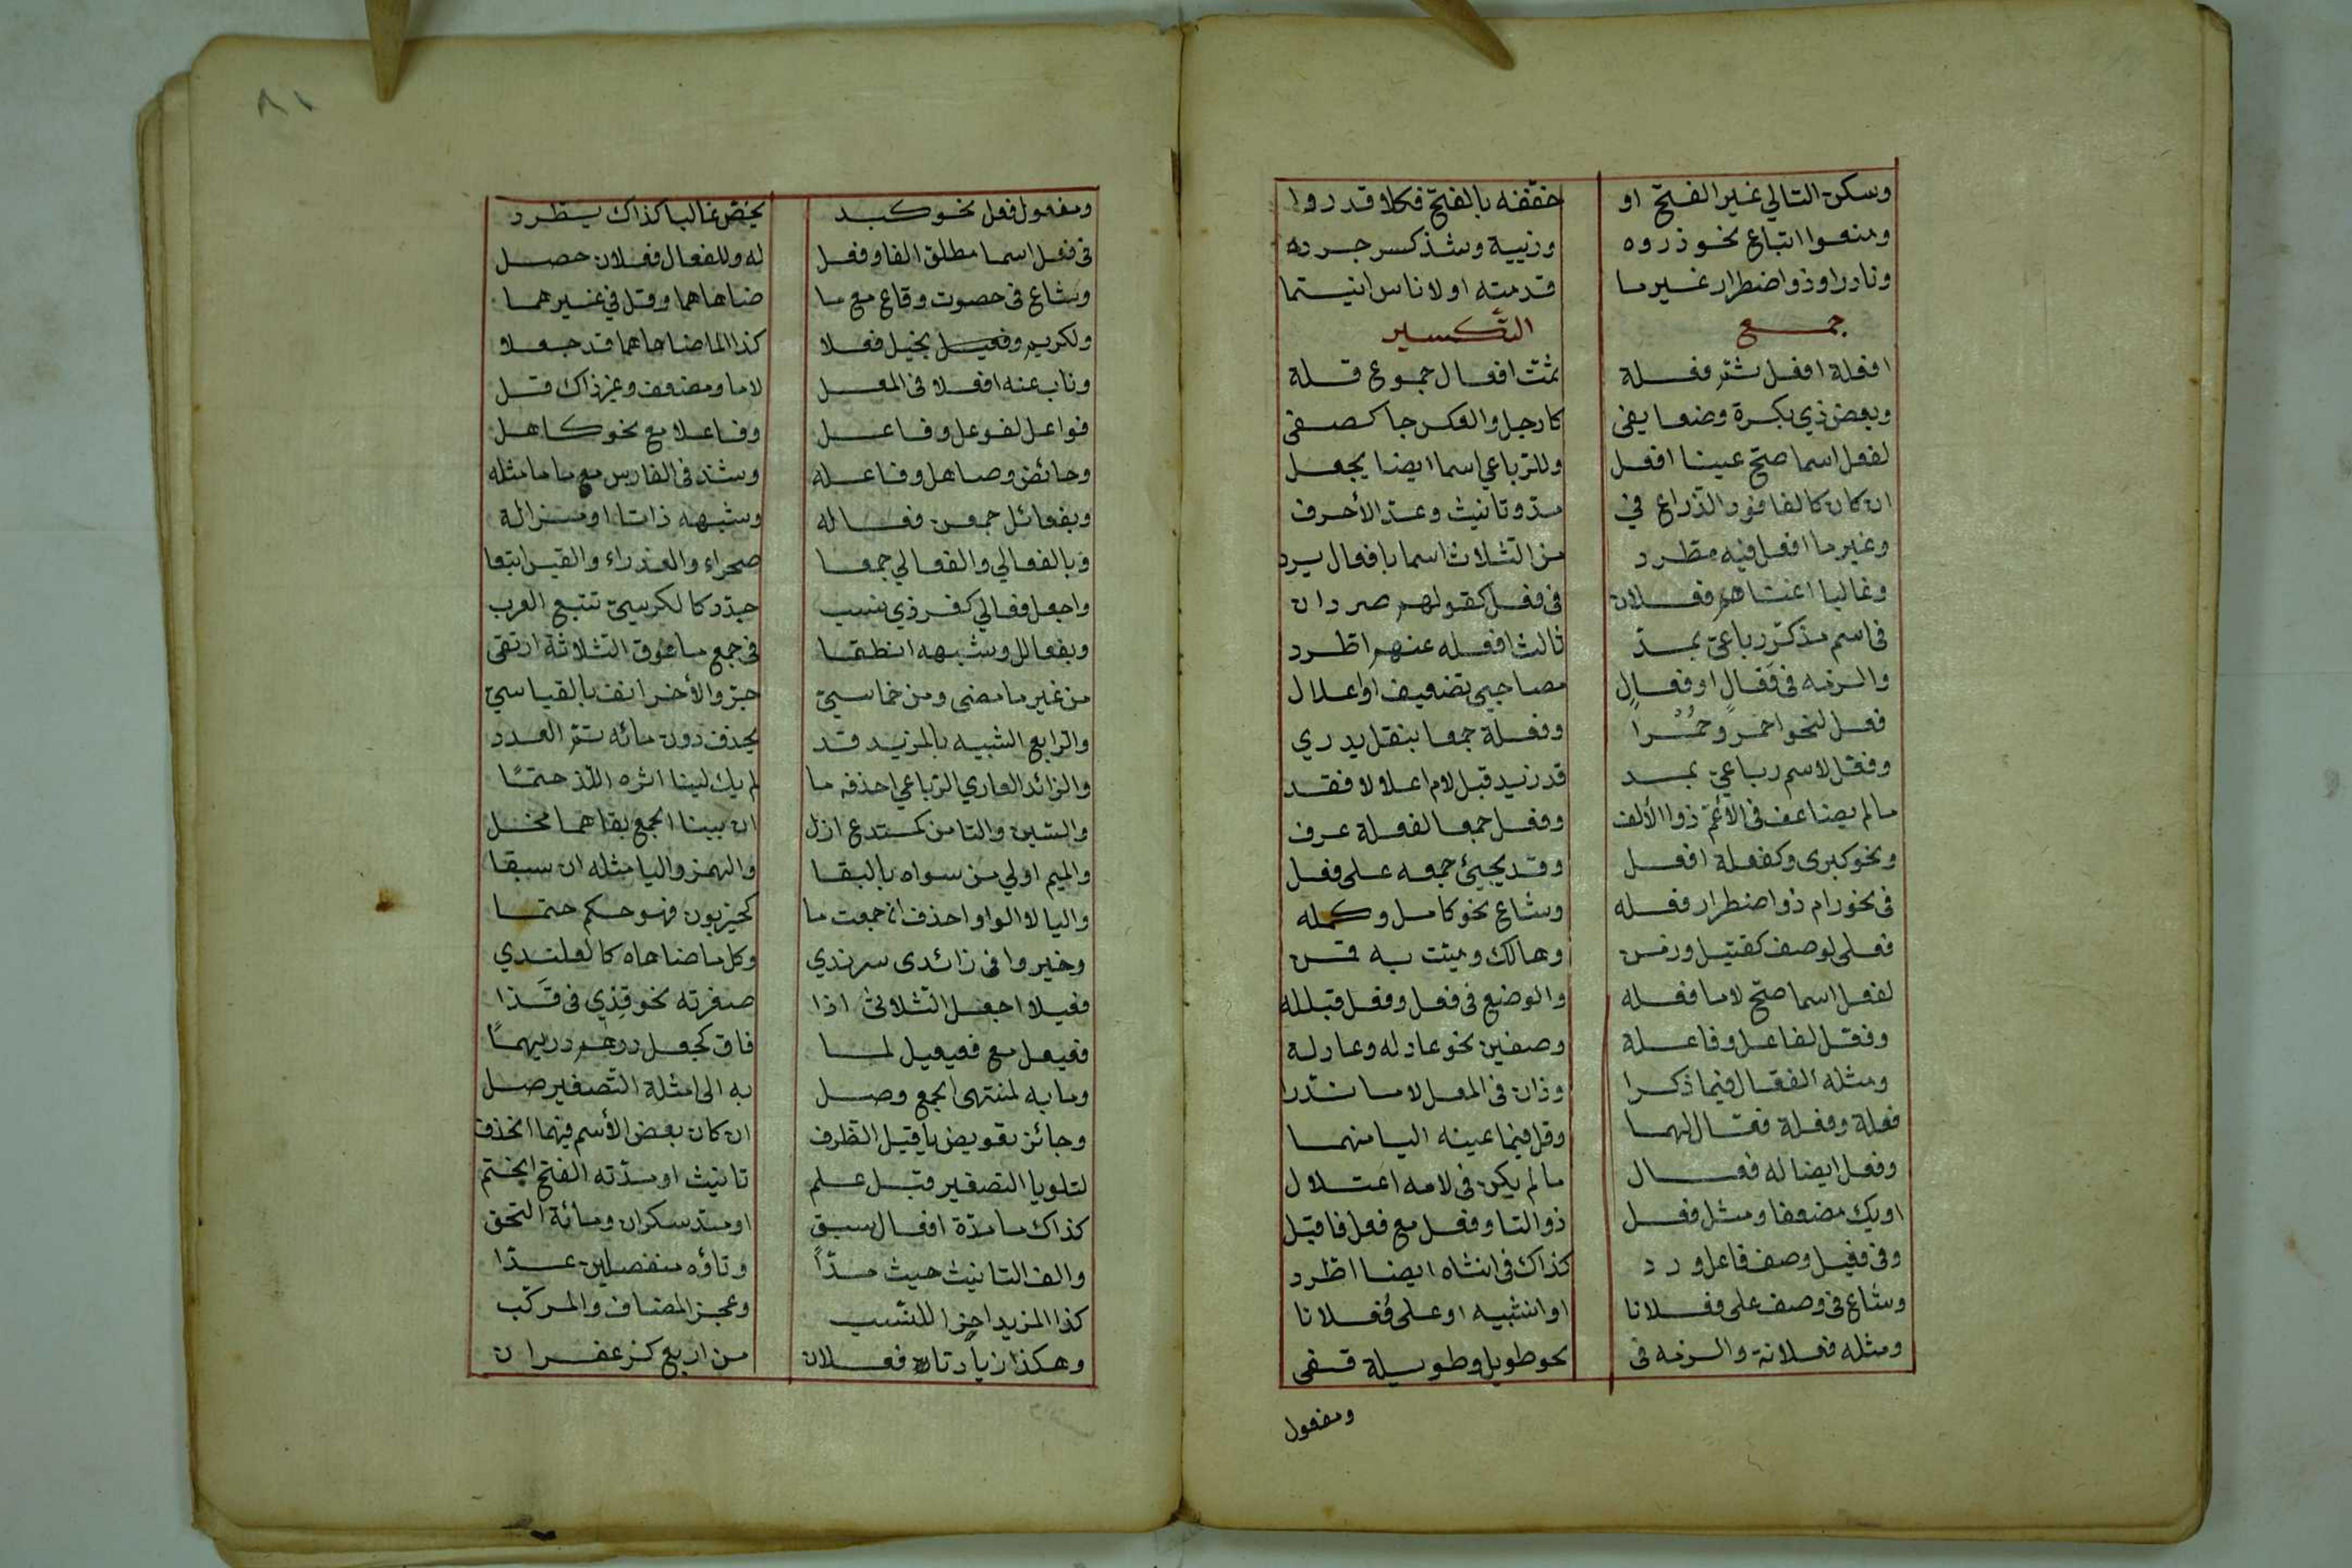 وسكن التالي غير الفتح او خففه بالفتح فكلا قد رووا
ومنعوا اتباع نحو ذروه وزبية وشذ كسر جروه
ونادر او ذو اضطرار غير ما قدمته او لاناس انتما
جمع التكسير
افعلة افعل ثم فعلة ثمت افعال جموع قلة
وبعض ذي بكثرة وضعا يفى كارجل والعكس جا كصفى
لفعل اسما صح عينا افعل وللرباعي اسما ايضا يجعل
ان كان كالعناق والذراع في مد وتانيث وعد الأحرف
وغير ما افعل فيه مطرد من الثلاث اسما بافعال يرد
وغالبا اغناهم فعلان فى فعل كقولهم صردان
فى اسم مذكر رباعى بمد ثالث افعله عنهم اطرد
والزمه فى فَعَالٍ او فِعَالٍ مصاحبى تضعيف او اعلال
فعل لنحو احمر وحمرا وفعلة جمعا بنقل يدري
وفعل لاسم رباعى بمد قد زيد قبل لام اعلالا فقد
مالم يضاعف فى الأعم ذوا الألف وفعل جمعا لفعلة عرف
ونحو كبرى وكفعلة افعل وقد يجيئ جمعه على فعل
فى نحو رام ذو اضطرار فعله وشاع نحو كامل وكمله
فعلى لوصف كقتيل وزمن وهالك وميت به قمن
لفعل اسما صح لاما فعله والوضع فى فعل وفعل قبلله
وفعل لفاعل وفاعلة وصفين نحو عادله وعادلة
ومثله الفعال فيما ذكرا وذان فى المعل لاما ندرا
فعلة وفعلة فعال لهما وقل فيما عينه اليا منهما
وفعل ايضا له فعال مالم يكن فى لامه اعتلال
او يك مضعفا ومثل فعل ذو التا وفعل مع فعل فاقبل
وفى فعيل وصف فاعل ورد كذاك فى انثاه ايضا اطرد
وشاع فى وصف على فعلانا او انثييه او على فُعلانا
ومثله فعلانة والزمه فى نحو طويل وطويلة قفى
ومفعول
٨١
ومفعول فعل نحو كبد يخص غالبا كذاك يطرد
فى فعل اسما مطلق الفا وفعل له وللفعال فعلان حصل
وشاع فى حصوت وقاع مع ما ضاهاهما وقل في غيرهما
ولكريم وفعيل بخيل فعلا كذا لما ضاهاهما قد جعلا
وناب عنه افعلا فى المعل لاما ومضعف وغير ذاك قل
فواعل لفوعل وفاعل وفاعلا مع نحو كاهل
وحائض وصاهل وفاعله وشذ فى الفارس مع ما ماثله
وبفعائل جمعن فعاله وشبهه ذاتا او مزالة
وبالفعالي والفعالي جمعا صحراء والعذراء والقيس اتبعا
واجعل فعالي كغير ذي نسب جدد كالكرسي تتبع العرب
وبفعالل وشبهه انطقا فى جمع ما فوق الثلاثة ارتقى
من غير ما مضى ومن خماسي جرد الأخر انف بالقياسي
والرابع الشبيه بالمزيد قد يحذف دون مائه تم العدد
والزائد العاري الرباعي احذفه ما لم يك لينا اثره اللذ حتمًا
والسين والتا من كمستدع ازل ان ببينا الجمع بقاهما مخل
والميم اولي من سواه بالبقا والهمز واليا مثله ان سبقا
واليا لا الواو احذف ان جمعت ما كحيزبون فهو حكم حتما
وخيروا فى زائدى سرندي وكل ما ضاهاه كالعلندي
فعيلا اجعل الثلاثى اذا صغرته نحو قذي فى قَذا
فعيعل مع فعيعيل لما فاق كجعل درهم دريهمًا
وما به لمنتهى الجمع وصل به الى امثلة التصغير صل
وجائز تعويض يا قبل الطرف ان كان بعض الأسم فيهما انحذف
لتلو يا التصغير قبل علم تانيث او مدته الفتح انحتم
كذاك ما مدة افعال سبق او مد سكران وما به التحق
والف التانيث حيث مدًّا وتاؤه منفصلين عدا
كذا المزيد اخرا للنسب وعجز المضاف والمركب
وهكذا زيادتا فعلان من اربع كزعفران